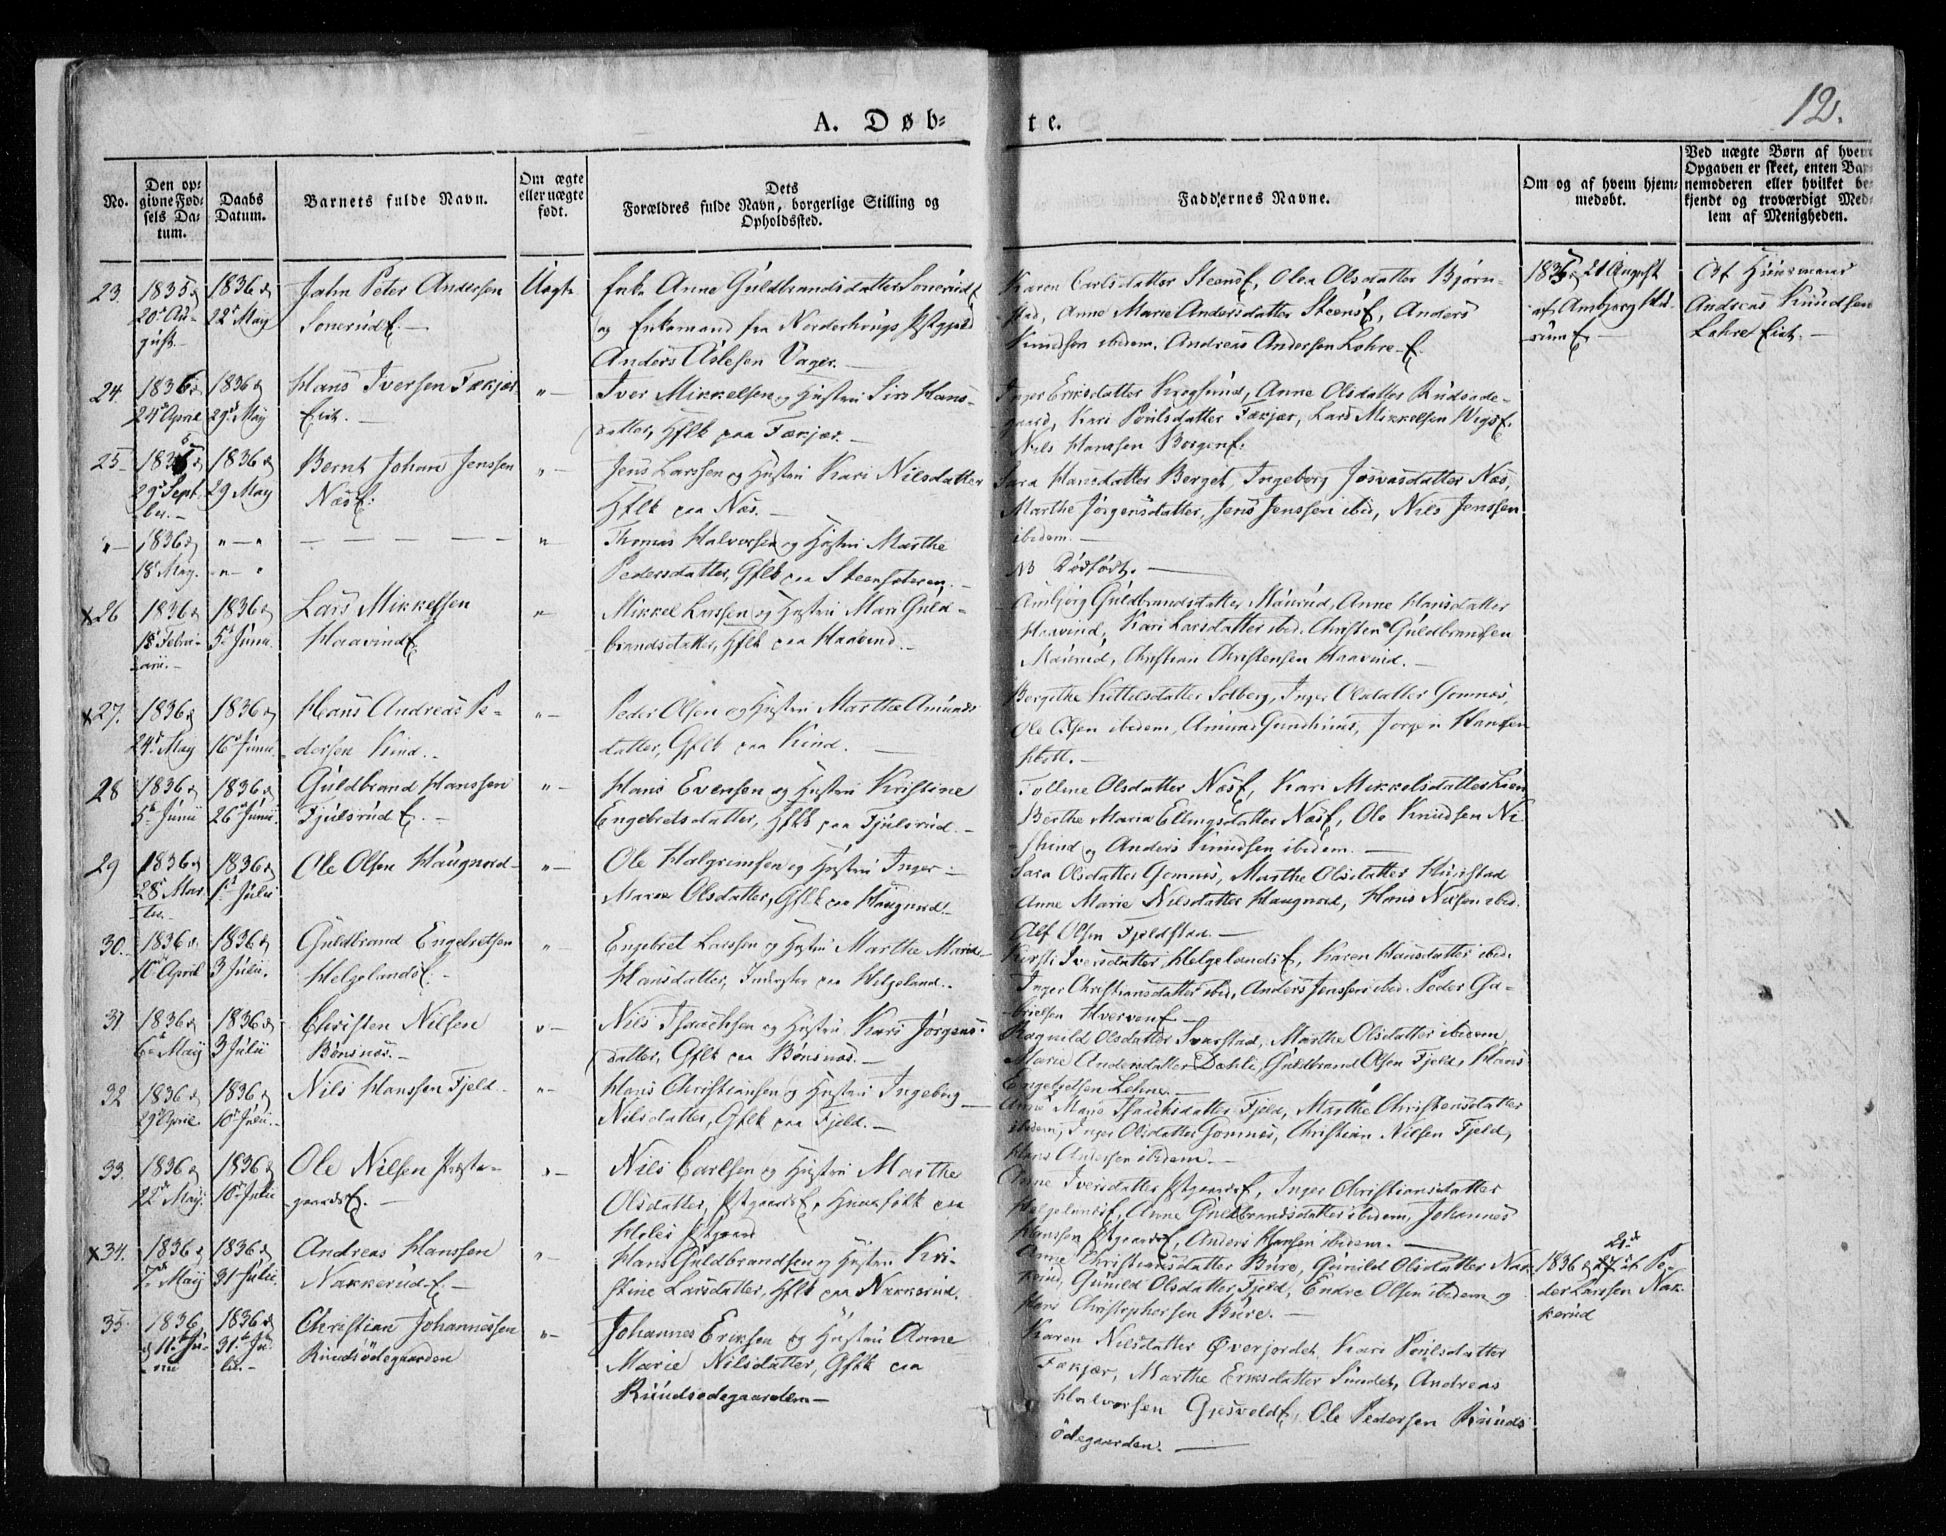 12.
A. Døb-
te.
No.
Den op-
givne Fød-
sels Da-
tum.
Daabs
Datum.
Barnets fulde Navn.
Om ægte
eller uægte
født.
Dets
Forældres fulde Navn, borgerlige Stilling og
Opholdssted.
Faddernes Navne.
Om og af hvem hjem-
medøbt.
Ved uægte Børn af hvem
Opgaven er skeet, enten Bar-
nemoderen eller hvilket be-
kjendt og troværdigt Med-
lem af Menigheden.
23.
1835 d
20d Au-
gust.
1836 d
22d May
John Peter Andersen
Sonerud E.
Uegte
Enke Anne Guldbrandsdatter Sonerud E
og Enkemand fra Norderhougs Pstgjeld
Anders Aslesen Vager.
Karen Carlsdatter Steens E, Olea Olsdatter Bjørn-
stad, Anne Marie Andersdatter Steens E, Anders
Knudsen ibidem. Andreas Andersen Lohre E.
1835 d 21 August
af Ambjørg
rum E.
Af Huusmand
Andreas Knudsen
Lohre Eiet.
24.
1836 d
24d April
1836 d
29d May
Hans Iversen Fækjær
Eiet.
"
Iver Mikkelsen og Hustru Siri Hans-
datter, Hflk paa Fækjær.
Inger Eriksdatter Krogsund, Anne Olsdatter Rudsøde-
gaard, Kari Povlsdatter Fækjær, Lars Mikkelsen Vigs E.
Nils Hanssen Borgen E.
25
1835 d
29d Sept-
ber.
1836 d
29 May
Bernt Johan Jenssen
Næs E.
"
Jens Larssen og Hustru Kari Nilsdatter
Hflk paa Næs.
Sara Hansdatter Berget, Ingeborg Josvasdatter Næs,
Marthe Jørgensdatter, Jens Jenssen ibid, Nils Jenssen
ibidem.
"
1836 d
18d May.
" "
" "
"
Thomas Halvorsen og Hustru Marthe
Pedersdatter, Gflk paa Steensæteren.
NB Dødfødt.
x 26
1836 d
18d Febru-
arii.
1836 d
5d Junii
Lars Mikkelsen
Haavind E.
"
Mikkel Larssen og Hustru Mari Guld-
brandsdatter, Hflk paa Haavind.
Ambjørg Guldbrandsdatter Mourud, Anne Hansdatter
Haavind, Kari Larsdatter ibid. Christen Guldbrandsen
Mourud, Christian Christensen Haavind.
x 27.
1836 d
24d May
1836 d
16d Junii
Hans Andreas Pe-
dersen Kind.
"
Peder Olsen og Hustru Marthe Amunds
datter, Gflk paa Kind.
Bergithe Kittilsdatter Solberg, Inger Olsdatter Gomnæs,
Ole Olsen ibidem, Amund Gundhuus, Jørgen Hansen
28
1836 d
5d Junii
1836 d
26d Junii.
Guldbrand Hanssen
Fjulsrud E.
"
Hans Evensen og Hustru Kristine
Engebretsdatter, Hflk paa Fjulsrud.
Tolline Olsdatter Næs E, Kari Mikkelsdatter Lien
Berthe Maria Ellingsdatter Næs E, Ole Knudsen Ni-
skind og Anders Knudsen ibidem.
29
1836 d
28d Mar-
tii.
1836 d
1d Julii
Ole Olsen Haugnord
"
Ole Halgrimsen og Hustru Inger
Marie Olsdatter, Gflk paa Haugnord.
Sara Olsdatter Gomnæs, Marthe Olsdatter Hurstad
Anne Marie Nilsdatter Haugnord, Hans Nilsen ibid.
Alf Olsen Fjeldstad.
30.
1836 d
10d April
1836 d
3 Julii.
Guldbrand Engebretsen
Helgelands E.
"
Engebret Larssen og Hustru Marthe Marie
Hansdatter, Inderster paa Helgeland.
Kirsti Iversdatter Helgelands E, Karen Hansdatter ibid.
Inger Christiansdatter ibid, Anders Jenssen ibid. Peder Ga-
brielsen Hverven E
31
1836 d
6d May
1836 d
3 Julii
Christen Nilsen
Bønsnæs.
"
Nils Thorichsen og Hustru Kari Jørgens-
datter, Gflk paa Bønsnæs.
Ragnild Olsdatter Svarstad, Marthe Olsdatter ibidem,
Marie Andersdatter Dæhli, Guldbrand Olsen Fjeld, Hans
Engebretsen Lehne.
32
1836 d
29d April
1836 d
10d Julii.
Nils Hanssen Fjeld.
"
Hans Christiansen og Hustru Ingeborg
Nilsdatter, Gflk paa Fjeld.
Anne Marie Thorichsdatter Fjeld, Marthe Christensdatter
ibidem, Inger Olsdatter Gomnæs, Christian Nilsen Fjeld,
Hans Andersen ibidem.
33.
1836 d
22d May.
1836 d
10d Julii
Ole Nilsen Præste-
gaards E.
"
Nils Carlsen og Hustru Marthe
Olsdatter, Pstgaards E, Huusfolk paa
Holes Pstgaard
Anne Iversdatter Pstgaards E, Inger Christiansdatter
Helgelands E, Anne Guldbrandsdatter ibidem, Johannes
Hanssen Pstgaards E, Anders Hansen ibidem.
x 34.
1836 d
7d May
1836 d
31 Julii
Andreas Hanssen
Nakkerud E.
"
Hans Guldbrandsen og Hustru Kri-
stine Larsdatter, Hflk paa Nakkerud.
Anne Christiansdatter Bure, Gunild Olsdatter Nak-
kerud, Gunild Olsdatter Fjeld, Endre Olsen ibidem og
Hans Christophersen Bure.
21d
1836 d af Pe-
der Larssen Nak-
kerud
35.
1836
d 11d Ju-
nii
1836 d
31d Ju-
lii.
Christian Johannessen
Ruudsødegaarden
"
Johannes Eriksen og Hustru Anne
Marie Nilsdatter, Gflk paa
Ruudsødegaarden
Karen Nilsdatter Øverjordet, Kari Povlsdatter
Fækjær, Marthe Eriksdatter Sundet, Andreas
Halvorsen Gjesvold E, Ole Pedersen Ruuds-
ødegaarden.